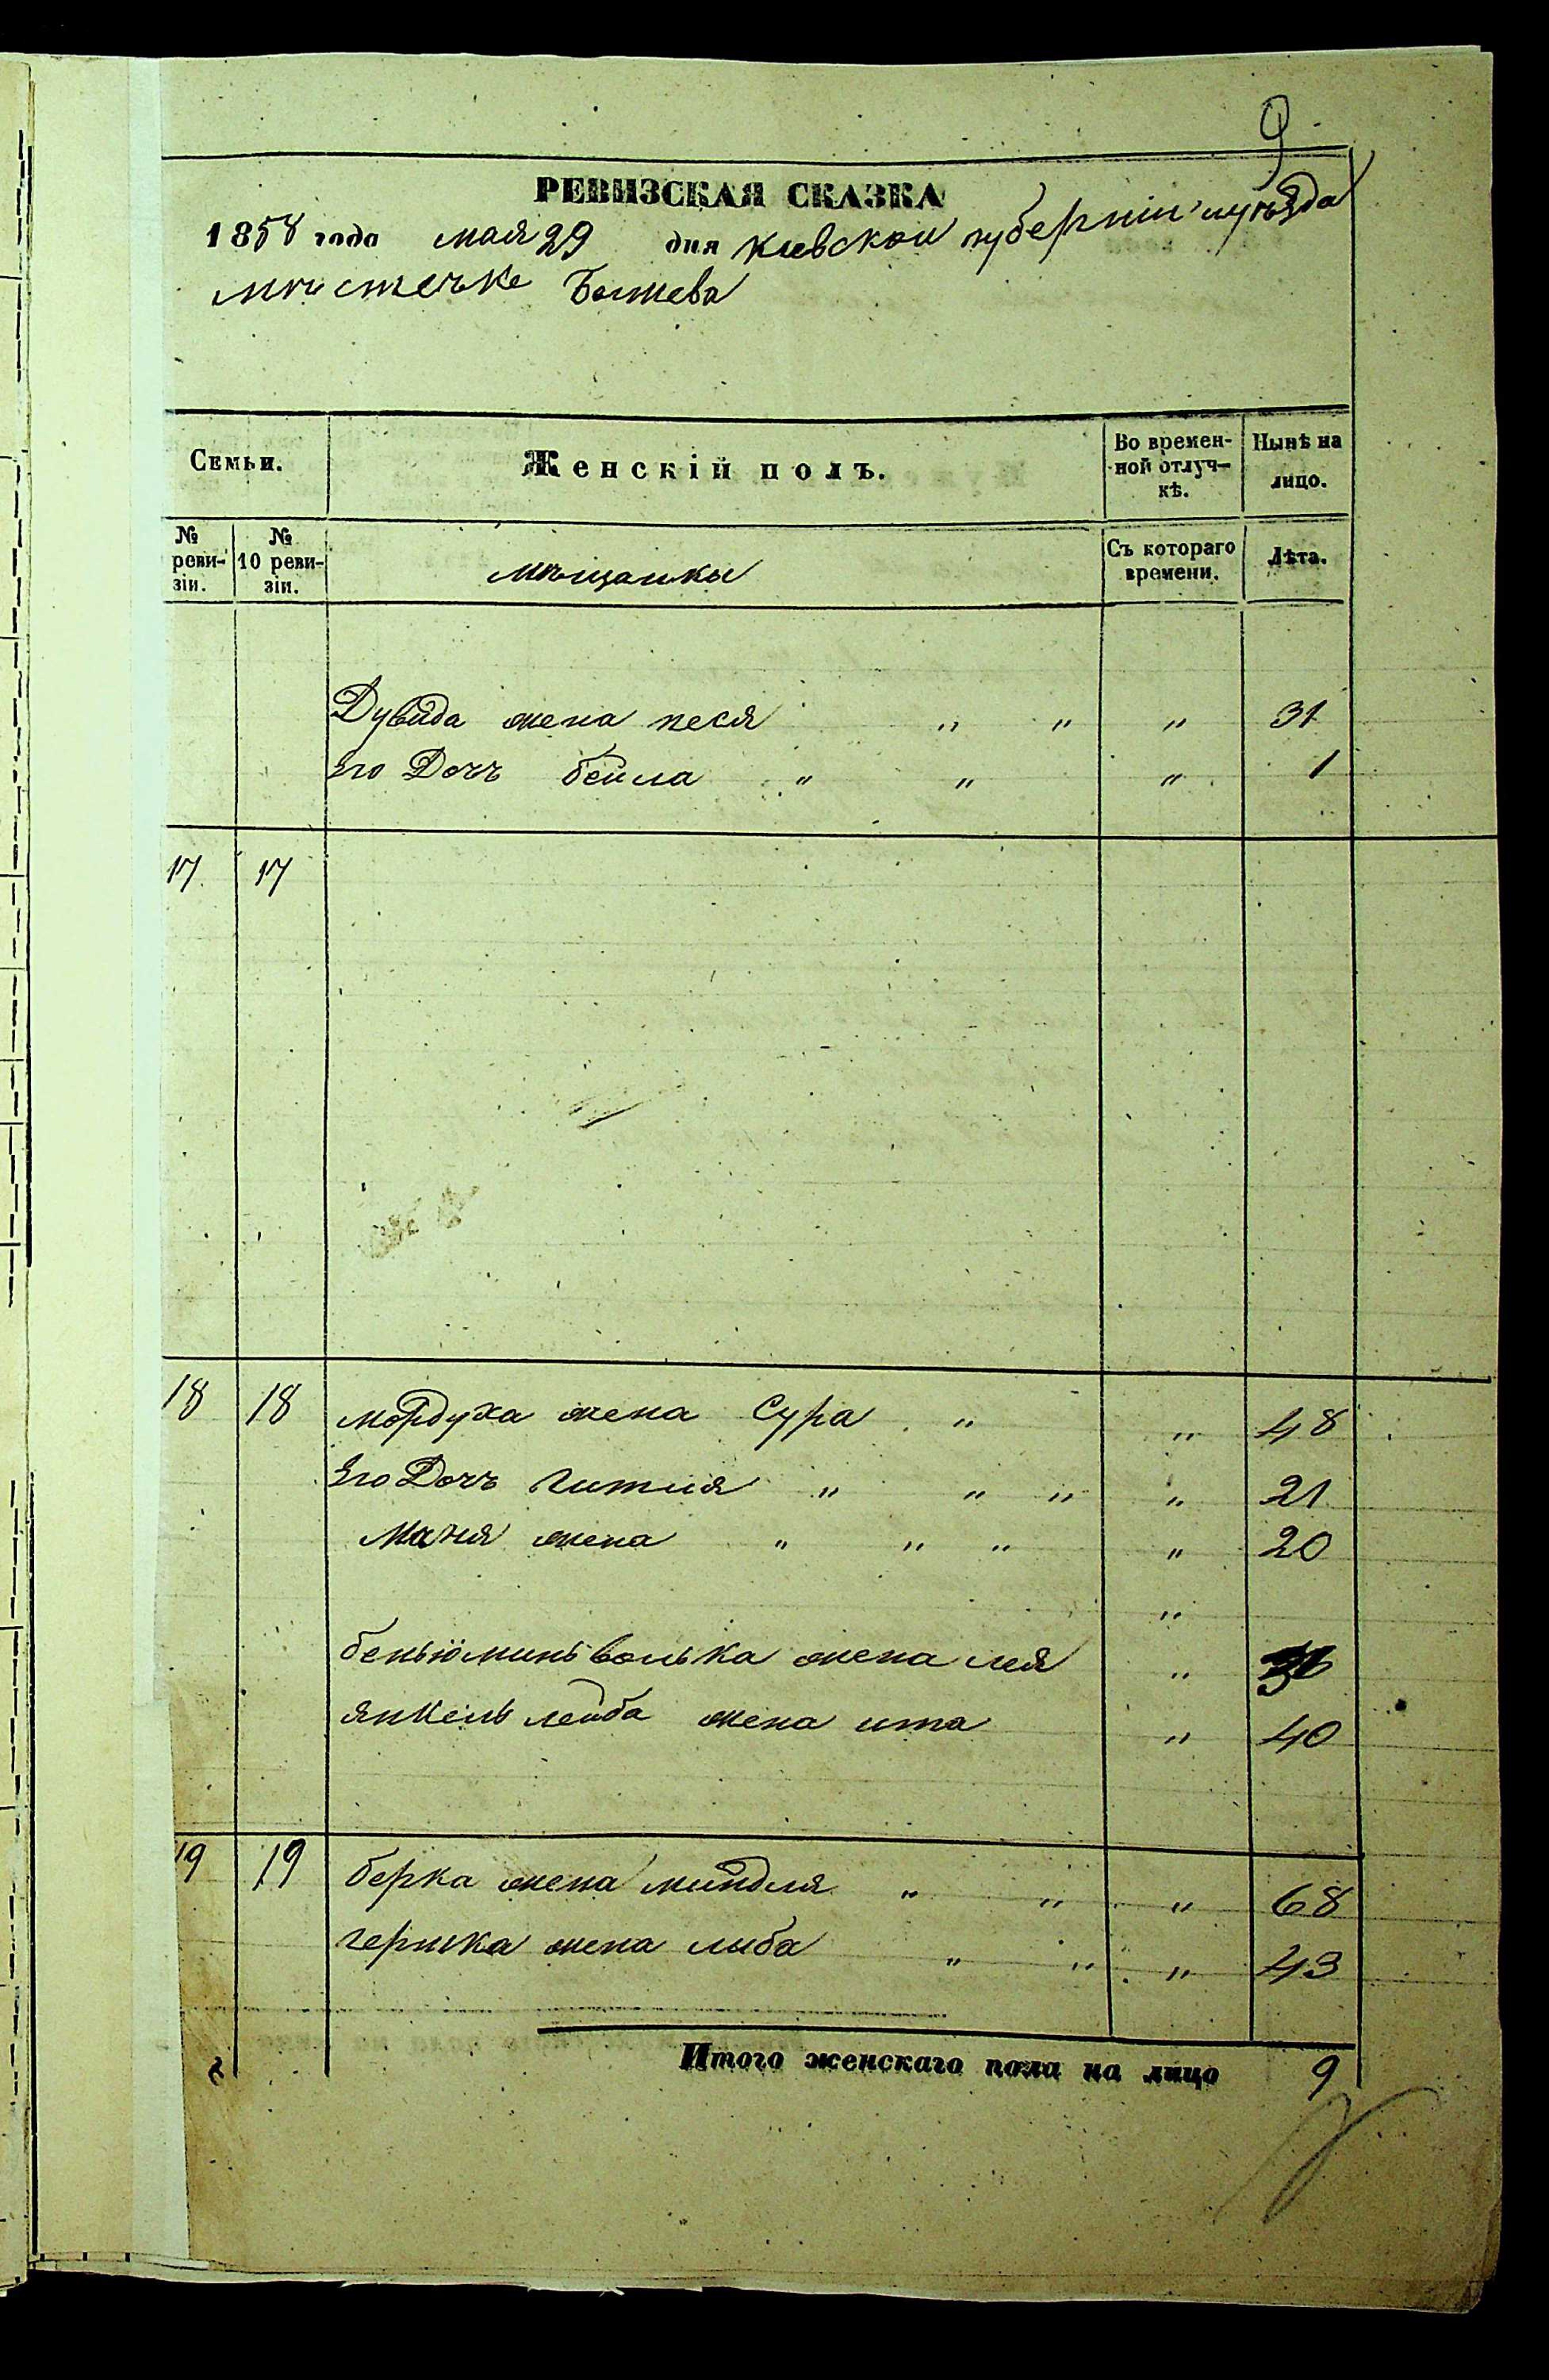 9
РЕВИЗСКАЯ СКАЗКА
1858 года мая 29 дня киевской губернии и уезда
мистечке
Семьи.
Женскій полъ.
Во времен-
ной отлуч-
кѣ.
Нынѣ на
лицо.
№
реви-
зіи.
№
10 реви-
зіи.
мѣщанки
Съ котораго
времени.
Лѣта.
Дувида жена песя " " " 31
Его Дочъ бейла " " " 1
17 17
18 18 мордуха жена Сура " " 48
Его Дочъ гитля " " " " 21
жена " " " " 20
"
беньюминь волька жена лея "
янкель лейба жена ита " 40
19 19 берка жена миндля " " " 68
гершка жена либа " " " 43
Итого женскаго пола на лицо 9